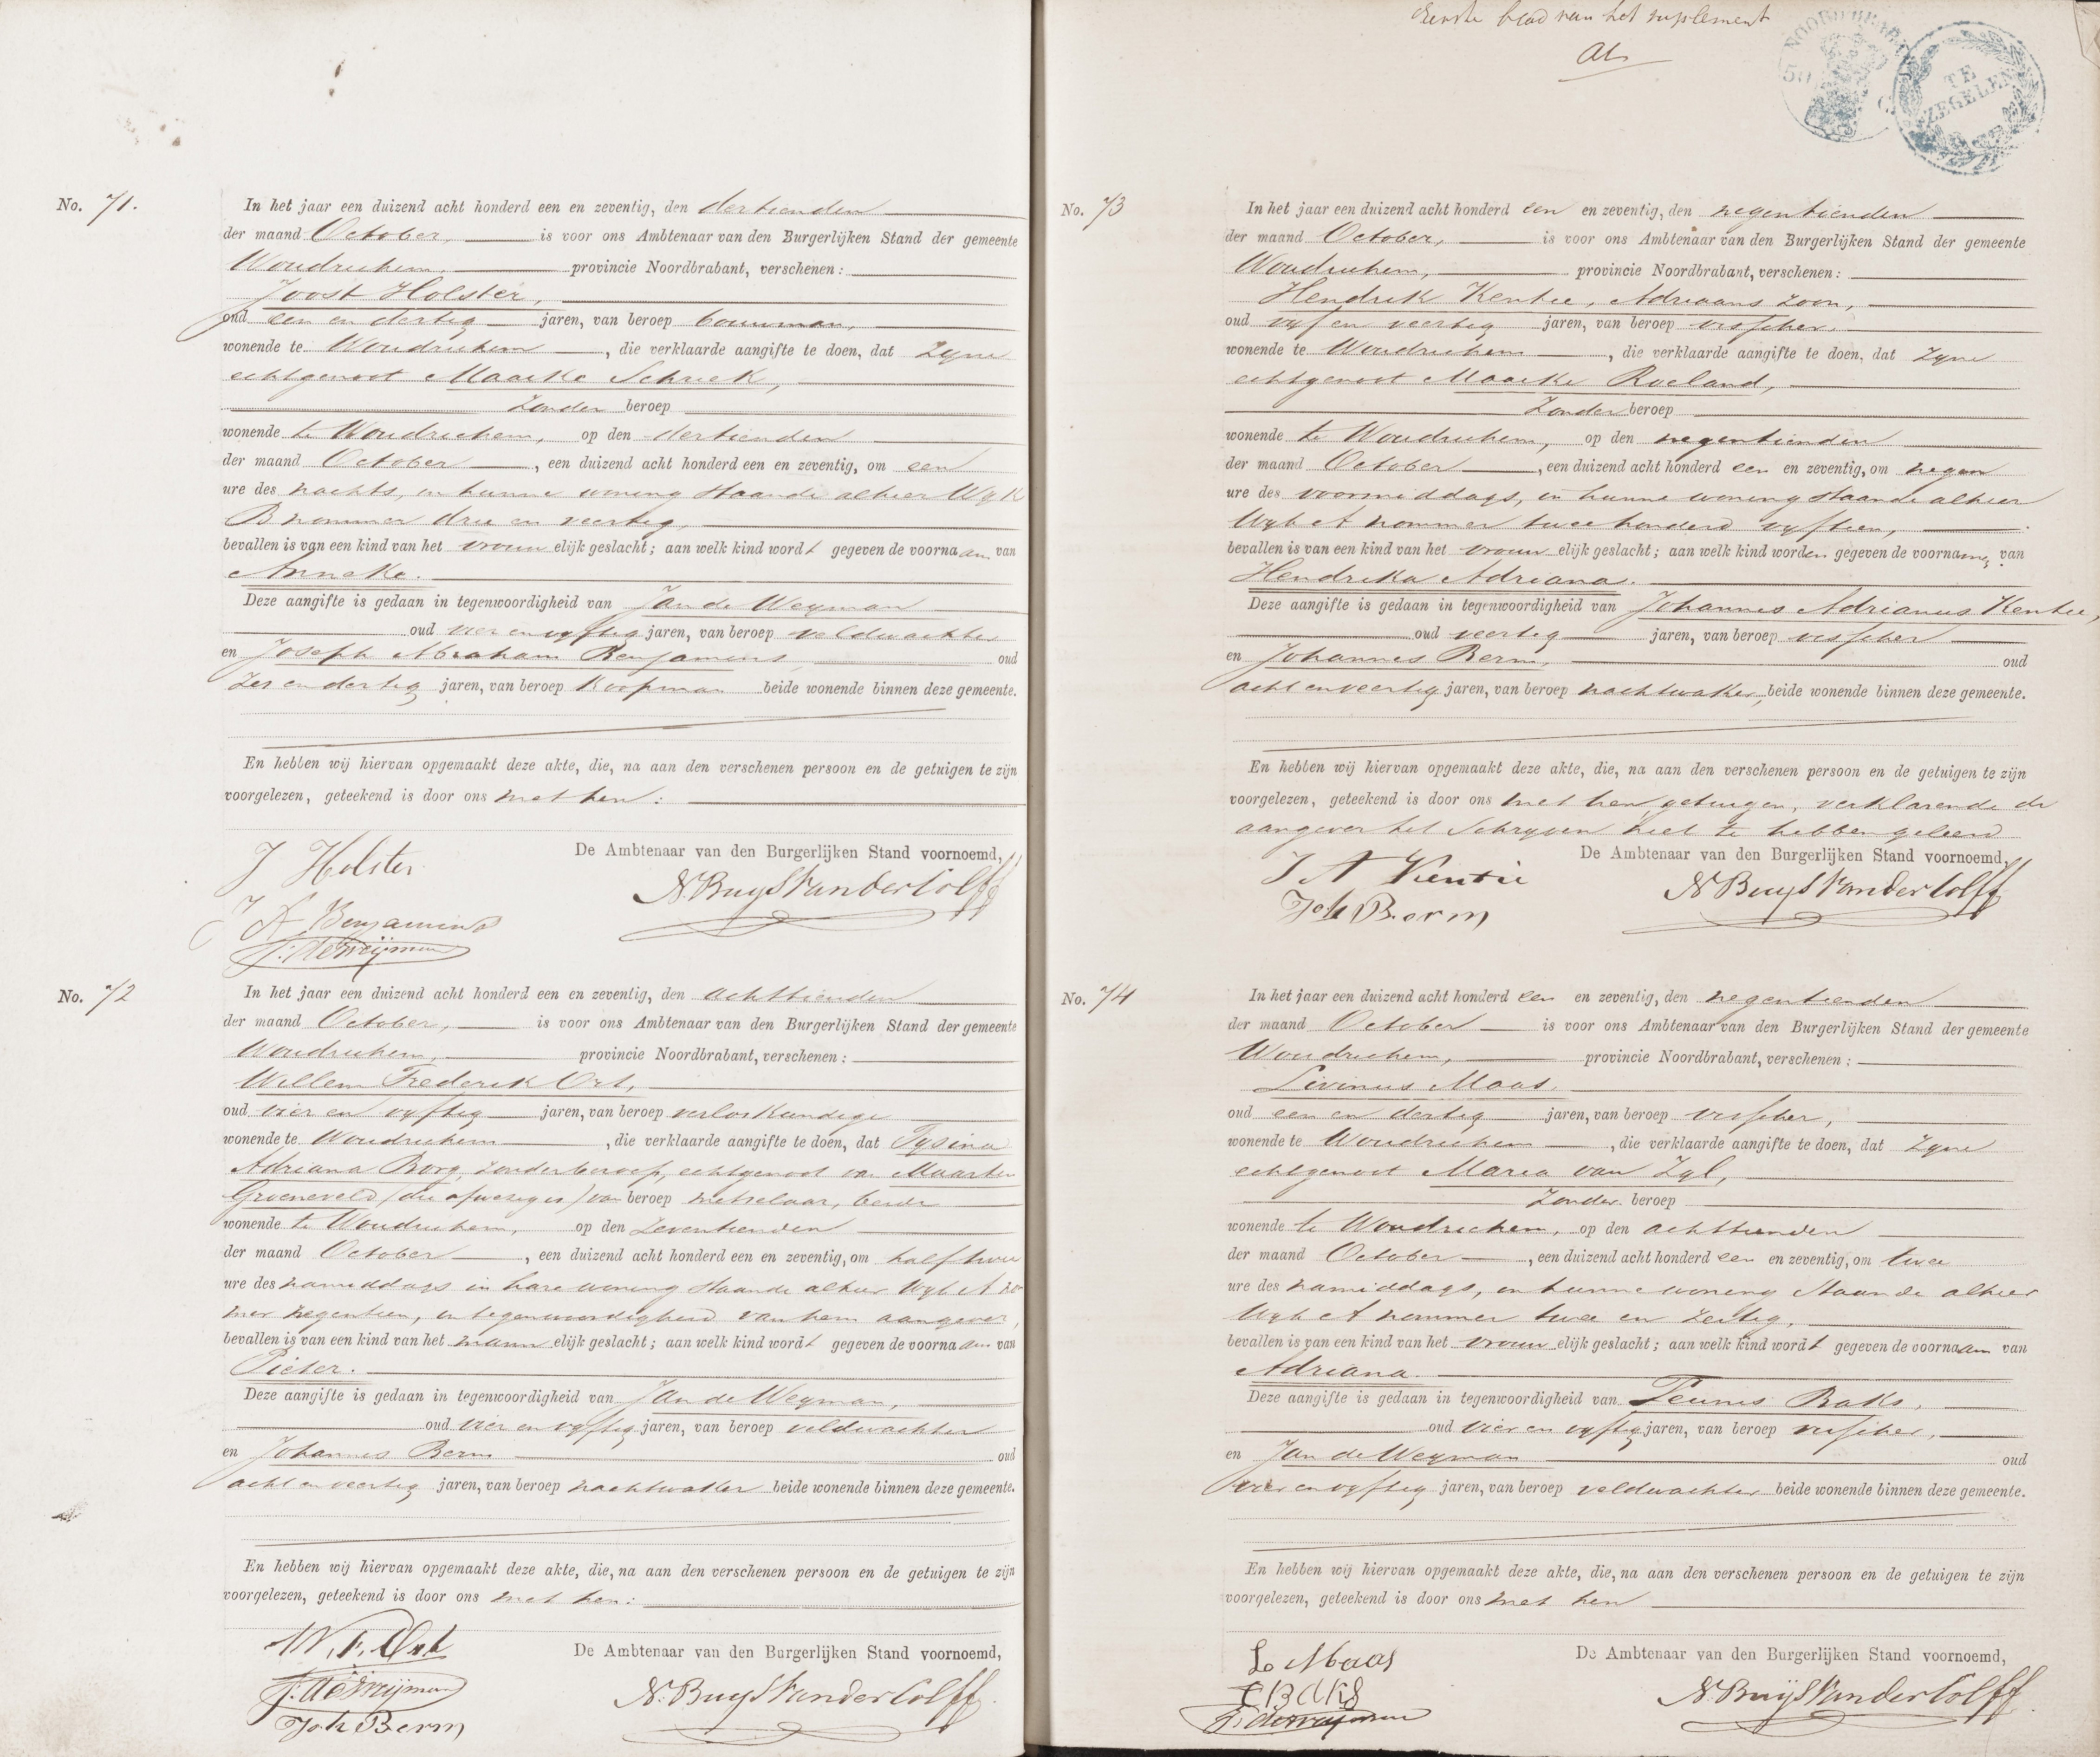 No. 71.
In het jaar een duizend acht honderd een en zeventig, den dertienden
der maand October, is voor ons Ambtenaar van den Burgerlijken Stand der gemeente
Woudrichem, provincie Noordbrabant, verschenen:
Joost Holster,
oud een en dertig jaren, van beroep bouwman,
wonende te Woudrichem, die verklaarde aangifte te doen, dat zyne
echtgenoot Maaike Schriek,
zonder beroep
wonende te Woudrichem, op den dertienden
der maand October, een duizend acht honderd een en zeventig, om een
ure des nachts, in hunne woning staande alhier Wyk
B nommer drie en veertig,
bevallen is van een kind van het vrouwelijk geslacht; aan welk kind wordt gegeven de voornaam van
Anneke.
Deze aangifte is gedaan in tegenwoordigheid van Jan de Weyman
oud vier en vyftig jaren, van beroep veldwachter
en Joseph Abraham Benjamins, oud
zes en dertig jaren, van beroep Koopman beide wonende binnen deze gemeente.
En hebben wij hiervan opgemaakt deze akte, die, na aan den verschenen persoon en de getuigen te zijn
voorgelezen, geteekend is door ons met hen:
De Ambtenaar van den Burgerlijken Stand voornoemd,
J Holster
J A Benjamins
J. de Weijman
N. Buys van der Colff
No. 72
In het jaar een duizend acht honderd een en zeventig, den achttienden
der maand October, is voor ons Ambtenaar van den Burgerlijken Stand der gemeente
Woudrichem, provincie Noordbrabant, verschenen:
Willem Frederik Ort,
oud vier en vyftig jaren, van beroep verloskundige
wonende te Woudrichem, die verklaarde aangifte te doen, dat Tysina
Adriana Borg, zonder beroep, echtgenoot van Maarten
Groeneveld (die afwezig is) van beroep metselaar, beide
wonende te Woudrichem, op den zeventienden
der maand October, een duizend acht honderd een en zeventig, om half twee
ure des namiddags in hare woning staande alhier Wyk A nom
mer negentien, in tegenwoordigheid van hem aangever,
bevallen is van een kind van het mannelijk geslacht; aan welk kind wordt gegeven de voornaam van
Pieter.
Deze aangifte is gedaan in tegenwoordigheid van Jan de Weyman,
oud vier en vyftig jaren, van beroep veldwachter
en Johannes Berm oud
acht en veertig jaren, van beroep nachtwaker beide wonende binnen deze gemeente.
En hebben wij hiervan opgemaakt deze akte, die, na aan den verschenen persoon en de getuigen te zijn
voorgelezen, geteekend is door ons met hen:
De Ambtenaar van den Burgerlijken Stand voornoemd,
W. F. Ort
J. de Weijman
Joh Berm
N. Buys van der Colff
Eerste blad van het suplement
NOORDBRABANT
50 C
TE
ZEGELEN
No. 73
In het jaar een duizend acht honderd een en zeventig, den negentienden
der maand October, is voor ons Ambtenaar van den Burgerlijken Stand der gemeente
Woudrichem, provincie Noordbrabant, verschenen:
Hendrik Kentie, Adriaans zoon,
oud vyf en veertig jaren, van beroep visscher.
wonende te Woudrichem, die verklaarde aangifte te doen, dat zyne
echtgenoot Maaike Roeland,
zonder beroep
wonende te Woudrichem, op den negentienden
der maand October, een duizend acht honderd een en zeventig, om negen
ure des voormiddags, in hunne woning staande alhier
Wyk A nommer twee honderd vyftien,
bevallen is van een kind van het vrouwelijk geslacht; aan welk kind worden gegeven de voornamen van
Hendrika Adriana.
Deze aangifte is gedaan in tegenwoordigheid van Johannes Adrianus Kentie,
oud veertig jaren, van beroep visscher
en Johannes Berm, oud
acht en veertig jaren, van beroep nachtwaker, beide wonende binnen deze gemeente.
En hebben wij hiervan opgemaakt deze akte, die, na aan den verschenen persoon en de getuigen te zijn
voorgelezen, geteekend is door ons met hen getuigen, verklarende de
aangever het schryven niet te hebben geleerd
De Ambtenaar van den Burgerlijken Stand voornoemd,
J A Kentie
Joh Berm
N. Buys van der Colff
No. 74
In het jaar een duizend acht honderd een en zeventig, den negentienden
der maand October is voor ons Ambtenaar van den Burgerlijken Stand der gemeente
Woudrichem, provincie Noordbrabant, verschenen:
Livinus Maas.
oud een en dertig jaren, van beroep visscher,
wonende te Woudrichem, die verklaarde aangifte te doen, dat zyne
echtgenoot Maria van Zyl,
zonder beroep
wonende te Woudrichem, op den achttienden
der maand October, een duizend acht honderd een en zeventig, om twee
ure des namiddags, in hunne woning staande alhier
Wyk A nommer twee en zestig,
bevallen is van een kind van het vrouwelijk geslacht; aan welk kind wordt gegeven de voornaam van
Adriana.
Deze aangifte is gedaan in tegenwoordigheid van Teunis Baks,
oud vier en vyftig jaren, van beroep visscher,
en Jan de Weyman oud
vier en vyftig jaren, van beroep veldwachter beide wonende binnen deze gemeente.
En hebben wij hiervan opgemaakt deze akte, die, na aan den verschenen persoon en de getuigen te zijn
voorgelezen, geteekend is door ons met hen
De Ambtenaar van den Burgerlijken Stand voornoemd,
L. Maas
T BAKS
J. de Weijman
N. Buys van der Colff